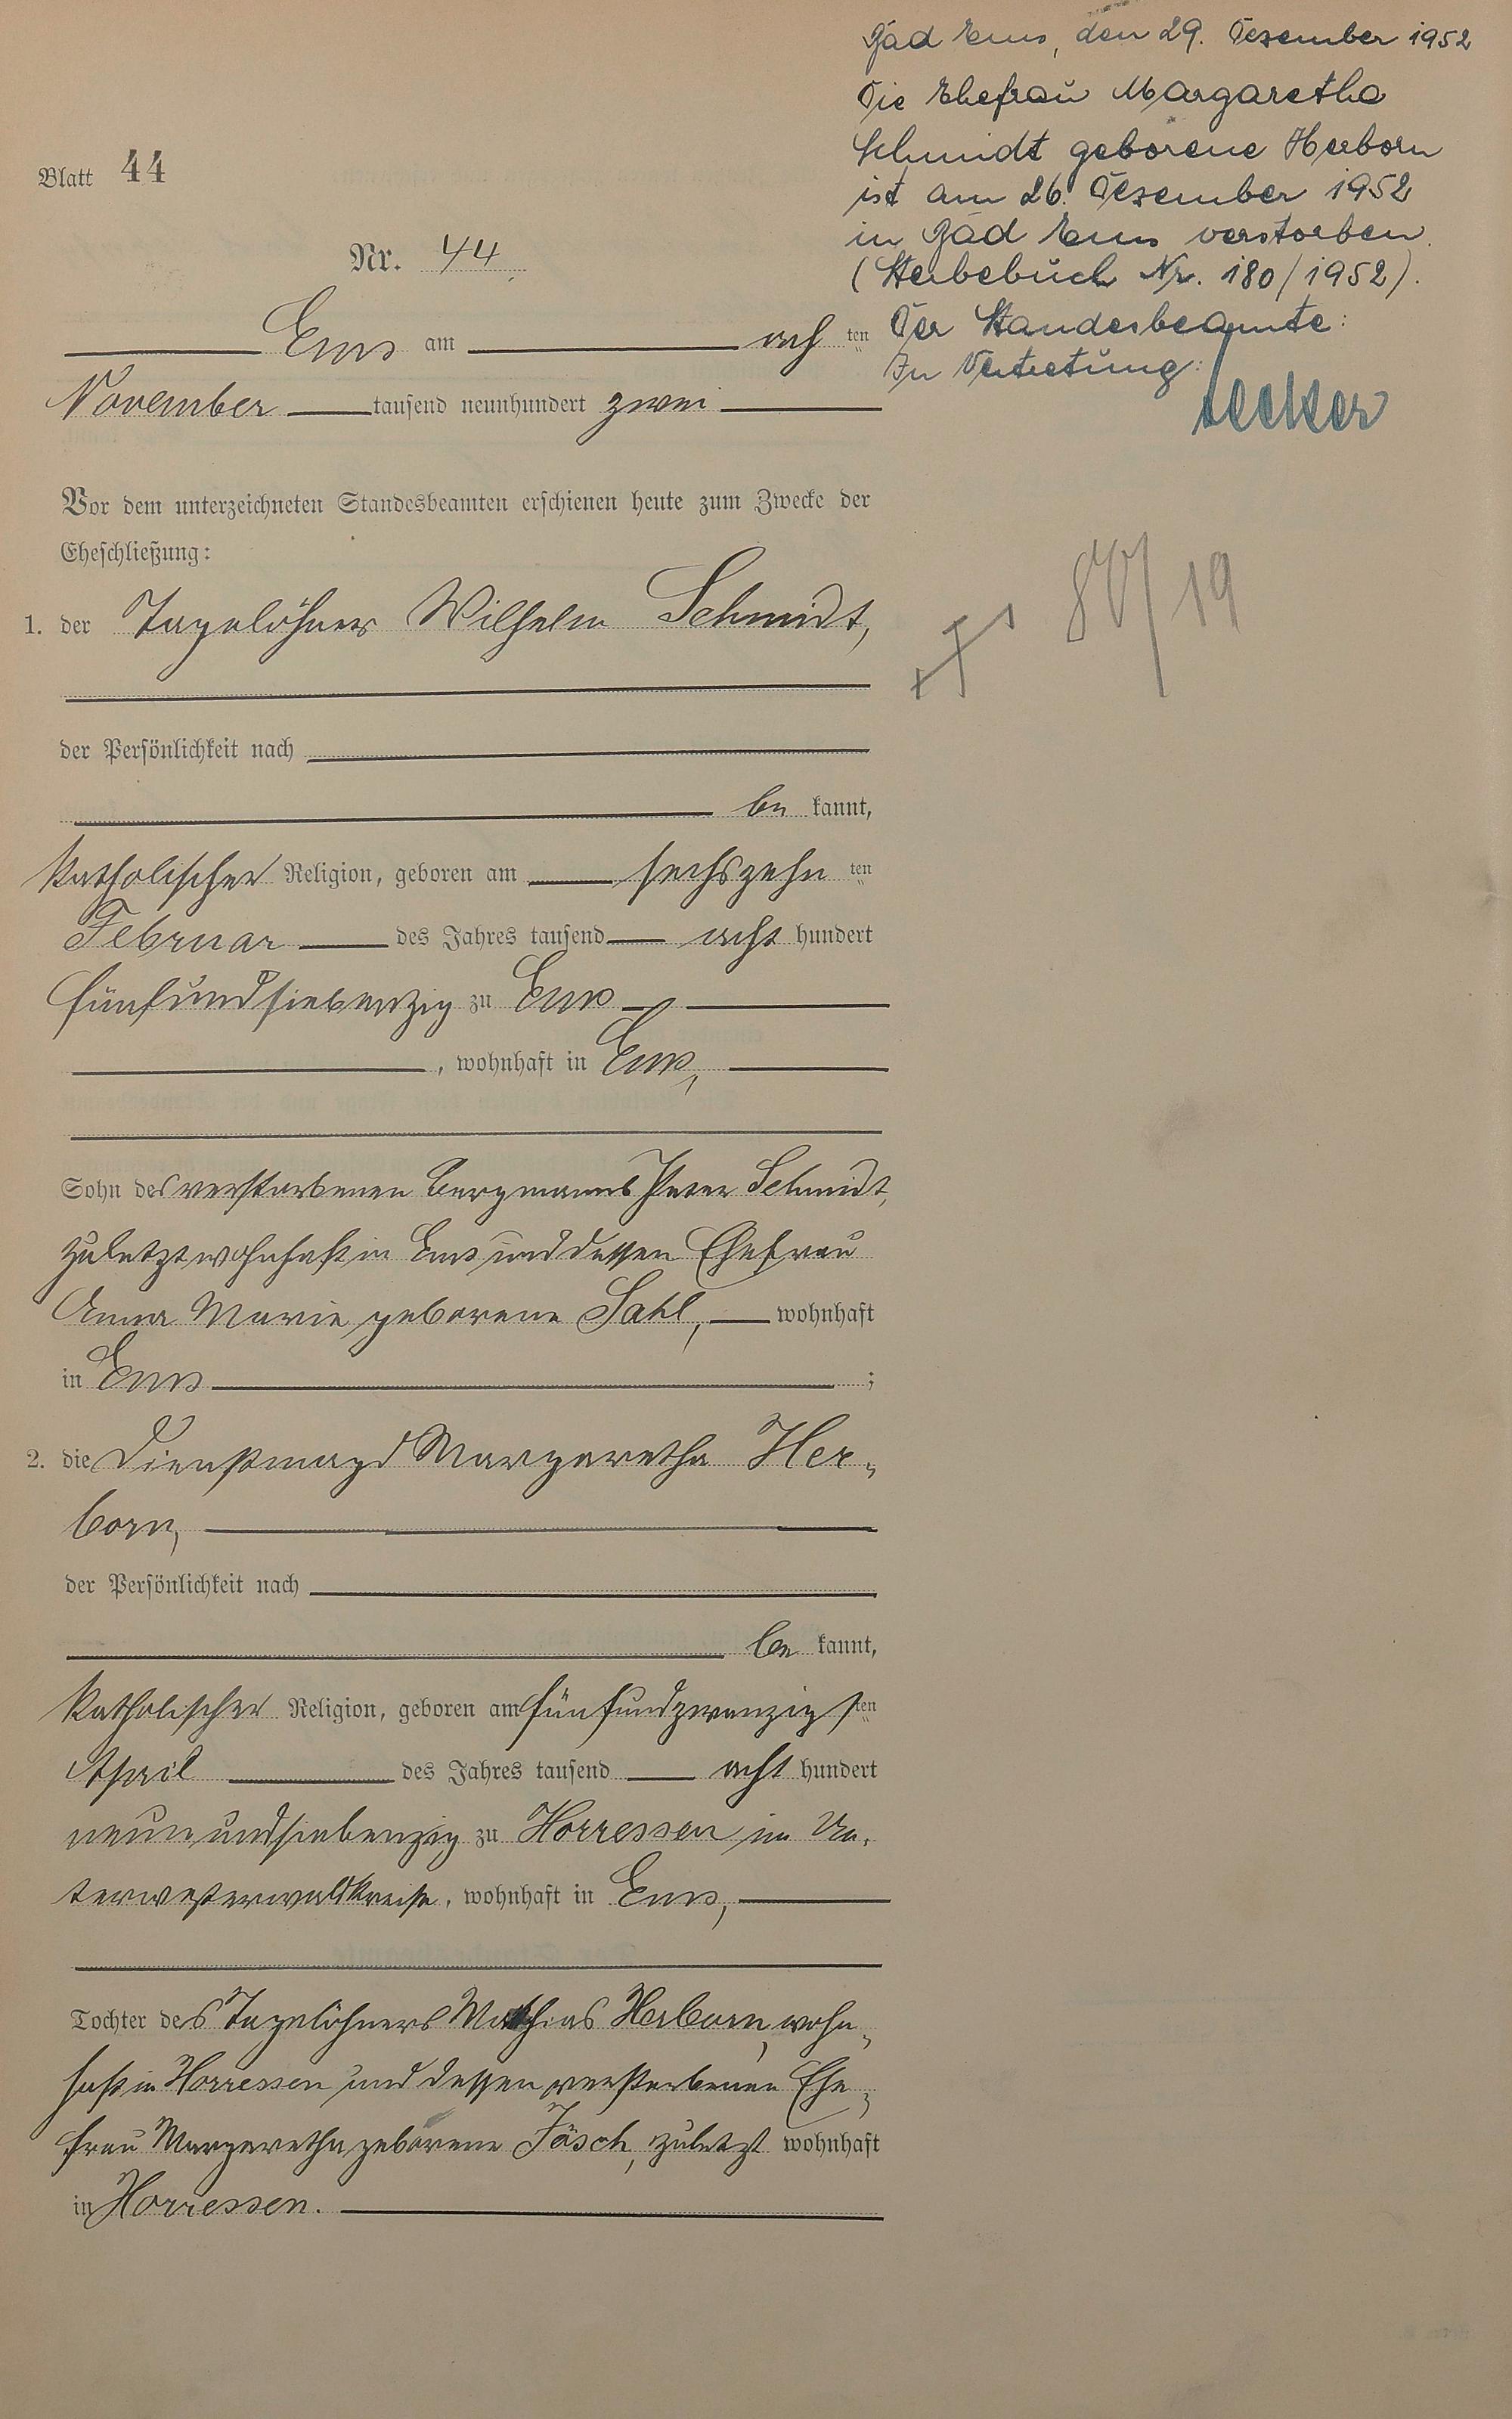 Bad Ems, den 29. Dezember 1952
Die Ehefrau Margaretha
Schmidt geborene Herborn
ist am 26. Dezember 1952
in Bad Ems verstorben.
(Sterbebuch Nr. 180/1952).
Der Standesbeamte:
In Vertretung:
Blatt 44
Nr. 44
Ems am ach ten
November tausend neunhundert zwei
Vor dem unterzeichneten Standesbeamten erschienen heute zum Zwecke der
Eheschließung:
1. der Tagelöhner Wilhelm Schmidt,
80/19
der Persönlichkeit nach
be kannt,
katholischer Religion, geboren am sechszehn ten
Februar des Jahres tausend acht hundert
fünfundsiebenzig zu Ems
, wohnhaft in Ems,
Sohn des verstorbenen Bergmanns Peter Schmidt,
zuletzt wohnhaft in Ems und dessen Ehefrau
Anna Marie geborene Sahl, wohnhaft
in Ems ;
2. die Dienstmagd Margaretha Her-
born,
der Persönlichkeit nach
be kannt,
katholischer Religion, geboren am fünfundzwanzigs ten
April des Jahres tausend acht hundert
neunundsiebenzig zu Horressen im Un-
terwesterwaldkreise, wohnhaft in Ems,
Tochter des Tagelöhners Mathias Herborn, wohn-
haft in Horressen und dessen verstorbenen Ehe-
frau Margaretha geborene Jösch, zuletzt wohnhaft
in Horressen.